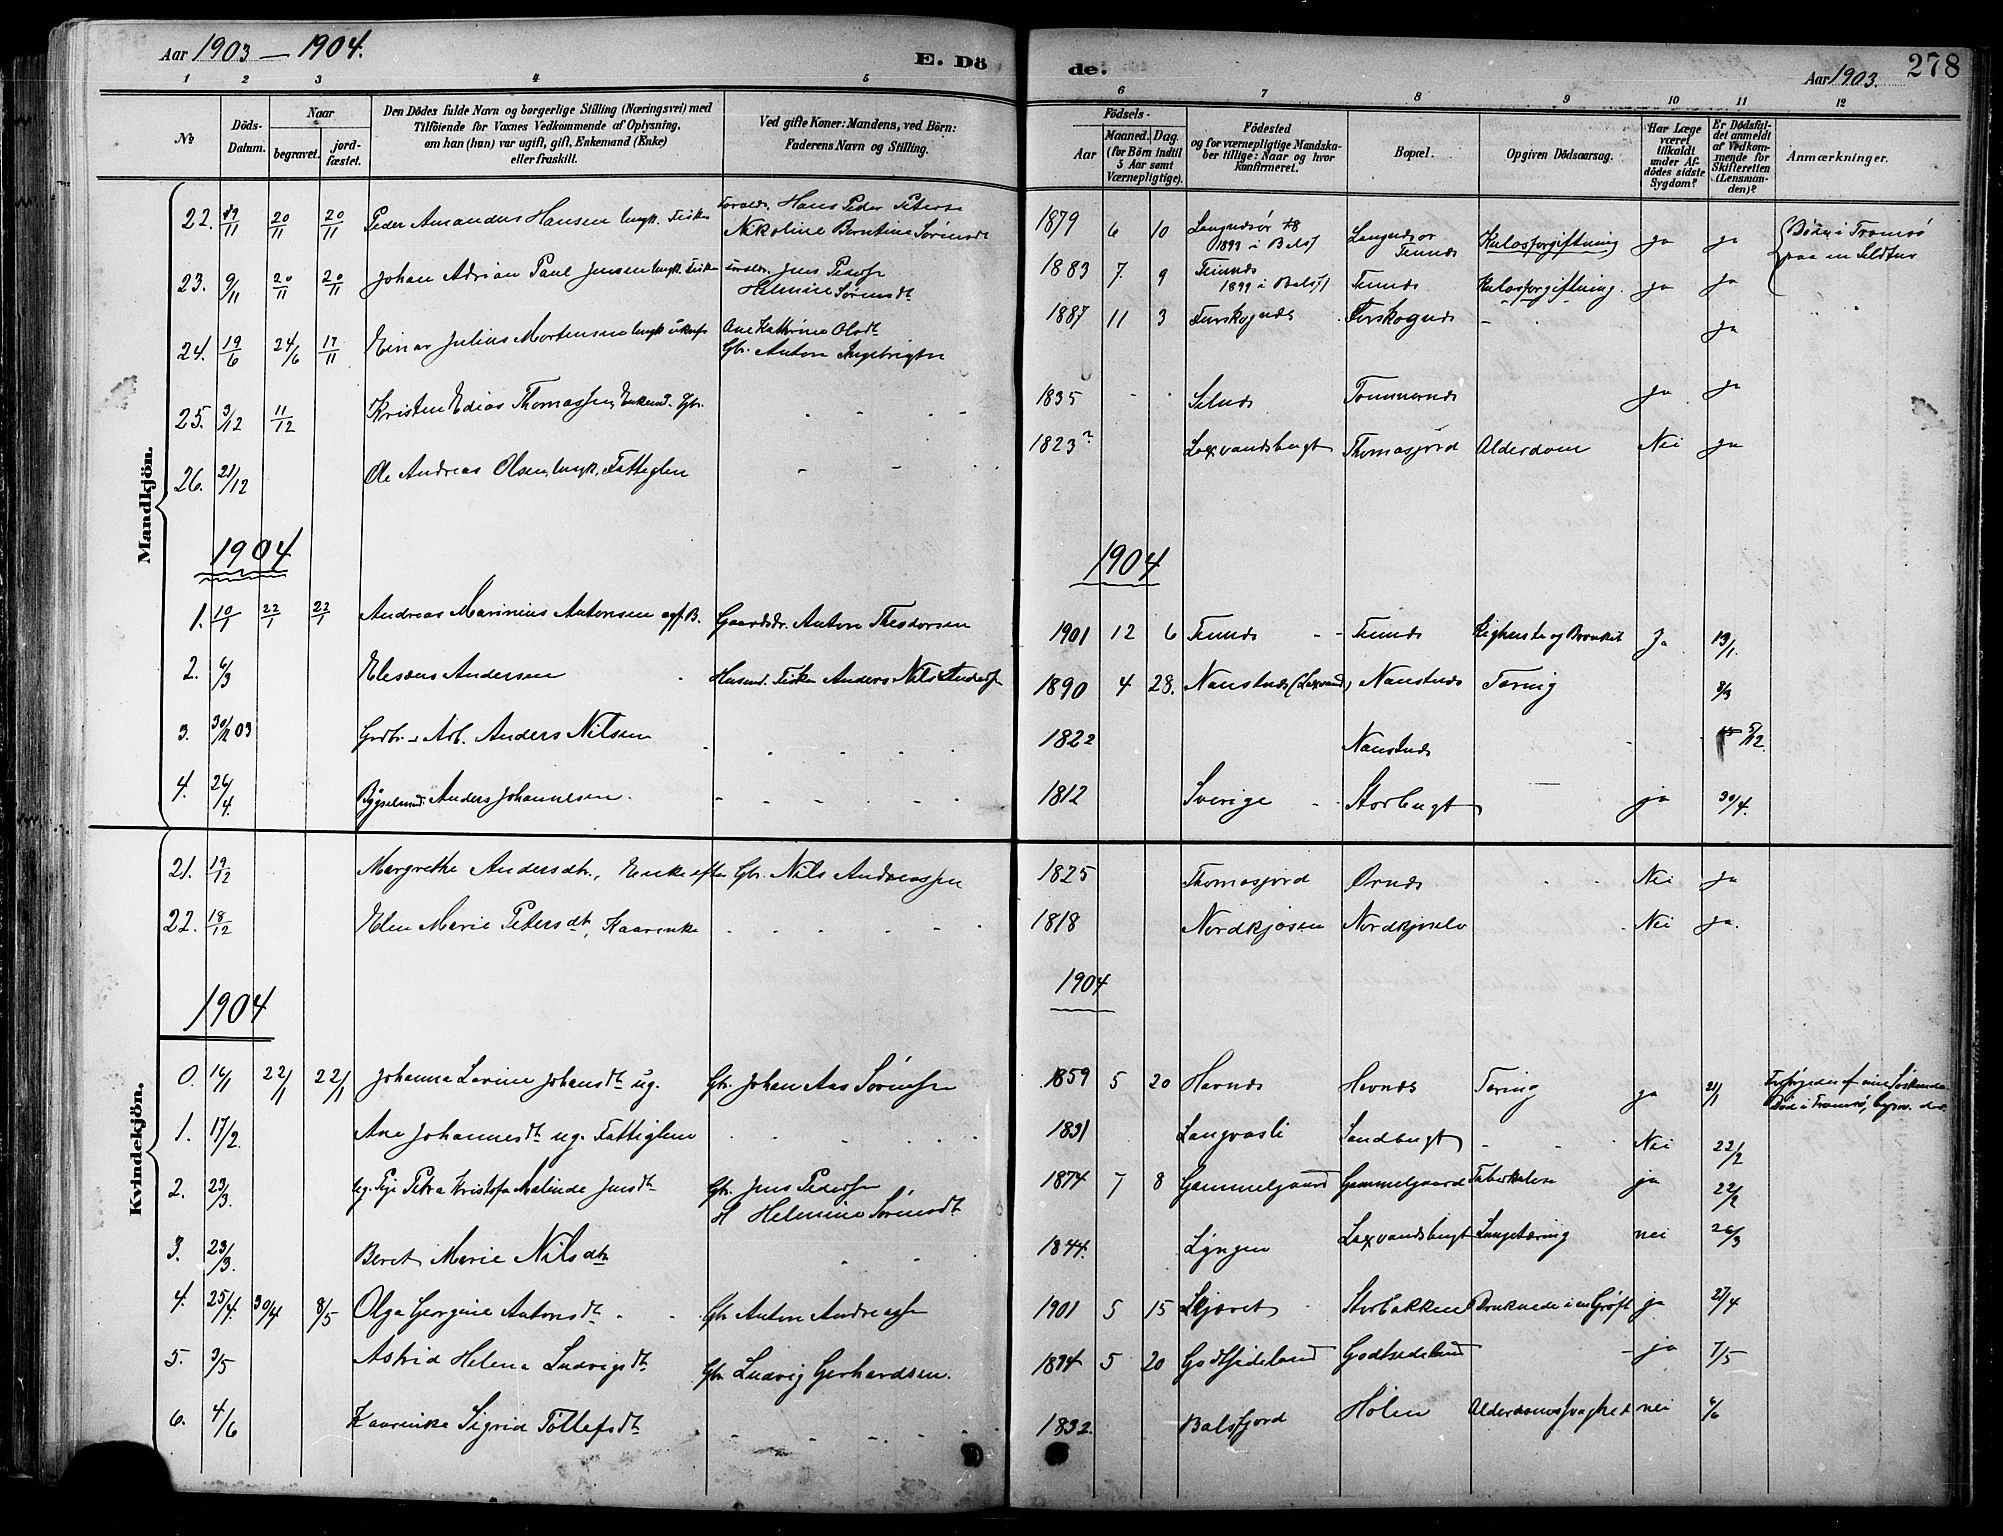 Aar 1903 — 1904.
E. Dö
de.
Aar 1903.
278
1 2 3 4 5
6 7 8 9 10 11 12
№
Döds-Datum.
Naar
begravet.
jord-fæstet.
Den Dödes fulde Navn og borgerlige Stilling (Næringsvei) med
Tilföiende for Voxnes Vedkommende af Oplysning,
om han (hun) var ugift, gift, Enkemand (Enke)
eller fraskilt.
Ved gifte Koner: Mandens, ved Börn:
Faderens Navn og Stilling.
Födsels-
Aar
Maaned. Dag.
(for Börn indtil
5 Aar samt
Værnepligtige).
Födested
og for værnepligtige Mandska-
ber tillige: Naar og hvor
konfirmeret.
Bopæl.
Opgiven Dödsaarsag.
Har Læge
været
tilkaldt
under Af-
dödes sidste
Sygdom?
Er Dödsfal-
det anmeldt
af Vedkom-
mende for
Skifteretten
(Lensman-
den)?
Anmærkninger.
Mandkjön.
22. 20/11 20/11 Peder Amandus Hansen Ungk. Fisker Hans Peder Peters Nikoline Berntine Sørensdt 1879 6 10 1899 i Balsfj Kulosforgiftning ja ja Døde i Tromsø
23. 9/11 20/11 20/11 Johan Adrian Paul Jensen Ungk. Fisker Jens Peders Helmine Sørensdt 1883 7. 9 1899 i Balsfj Kulosforgiftning. ja ja paa en
24. 19/6 24/6 17/11 Einar Julius Mortensen Ungk Ane Kathrine Olsdt Gbr. Anton Ingebrigtsn 1887 11 3 - ja
25. 3/12 11/12 Kristen Edias Thomassen, Enkemd. Gbr. 1835 Selnæs Tømmernes ja ja
26. 21/12 Ole Andreas Olsen, Ungk. Fattiglem 1823? Laxvandsbugt Thomasjord Alderdom Nei ja
1904
1904
1. 10/1 22/1 22/1 Andreas Marinius Antonsen Gaardbr. Anton Theodorsen 1901 12 6 Bronkit Ja 13/1.
2. 6/3 Elesæus Andersen Husmd. Fisker Anders Nils Anders 1890 4 28. Tæring 8/3
3. 30/12 03 Anders Nilsen 1822 5/12.
4. 26/4. Bygselmd. Anders Johannesen. 1812 Sverige Storbugt ja 30/4.
21. 19/12 Margrethe Andersdtr., Enke efter Gbr. Nils Andreassen 1825 Thomasjord Nei ja
22. 18/12 Elen Marie Petersdt, Kaarenke 1818 Nordkjosen Nordkjoselv Nei ja.
1904
1904
Kvindekjön.
0. 16/1 22/1 22/1 Johanna Lavine Johansdt ug. Gbr. Johan Aas Sørens 1859 5 20 Havnæs Havnæs Tæring ja 21/1 Døde i Tromsø,
1. 17/2. Ane Johannesdt ug. Fattiglem 1831 Langvasli Sandbugt Nei 22/2
2. 23/3. ug. Pige Petra Kristofa Malinde Jensdt Gbr. Jens Peders H Helmine Sørensdt 1874 7 8 Gammelgaard Gammelgaard Tuberkulose ja 22/2
3. 23/3. Beret Marie Nilsdtr 1844. Lyngen Laxvandsbugt Lungetæring nei 26/3
4. 25/4. 30/4 8/5 Olga Georgine Antonsdt Gbr Anton Andreass 1901 5 15 Storbakken Druknede i en Grøft ja 27/4
5. 3/5 Astrid Helena Ludvigsdt Gbr Ludvig Gerhardsen. 1894 5 20 Godtsideland Godtsideland ja 7/5
6. 4/6 Kaarenke Sigrid Töllefsdt 1832. Balsfjord Holen Alderdomssvaghed nei 6/6